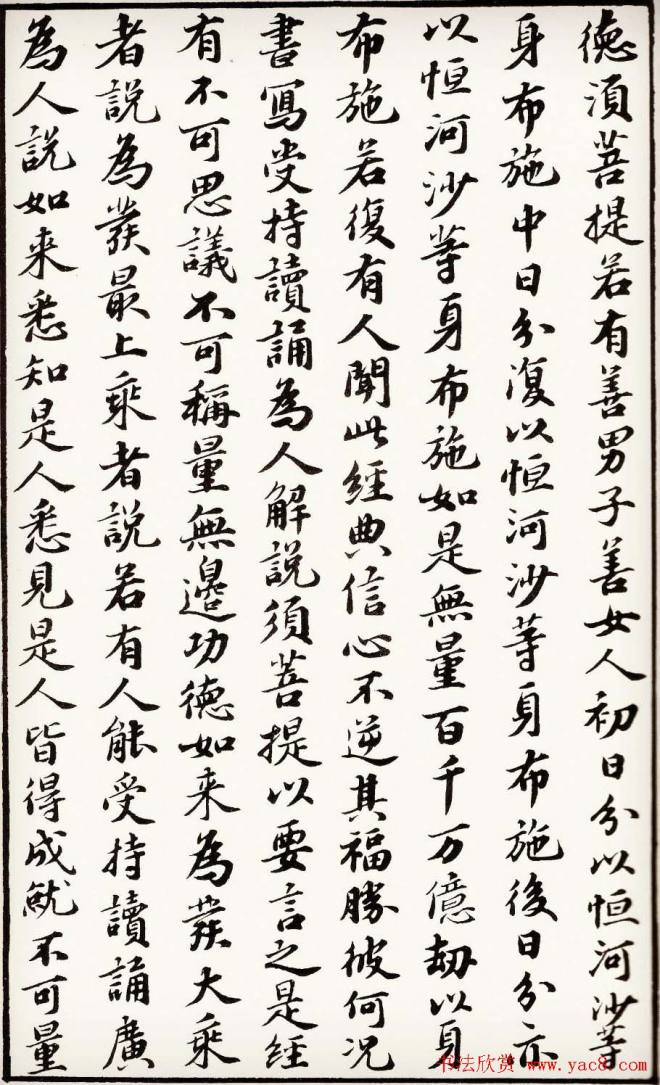 德須菩提若有善男子善女人初日分以恒河沙等
身布施中日分復以恒河沙等身布施後日分亦
以恒河沙等身布施如是無量百千万億劫以身
布施若復有人聞此經典信心不逆其福勝彼何況
書寫受持讀誦為人解說須菩提以要言之是經
有不可思議不可稱量無邊功德如来為發大乘
者說為發最上乘者說若有人能受持讀誦廣
為人說如来悉知是人悉見是人皆得成就不可量
书法欣赏 www.yac8.com